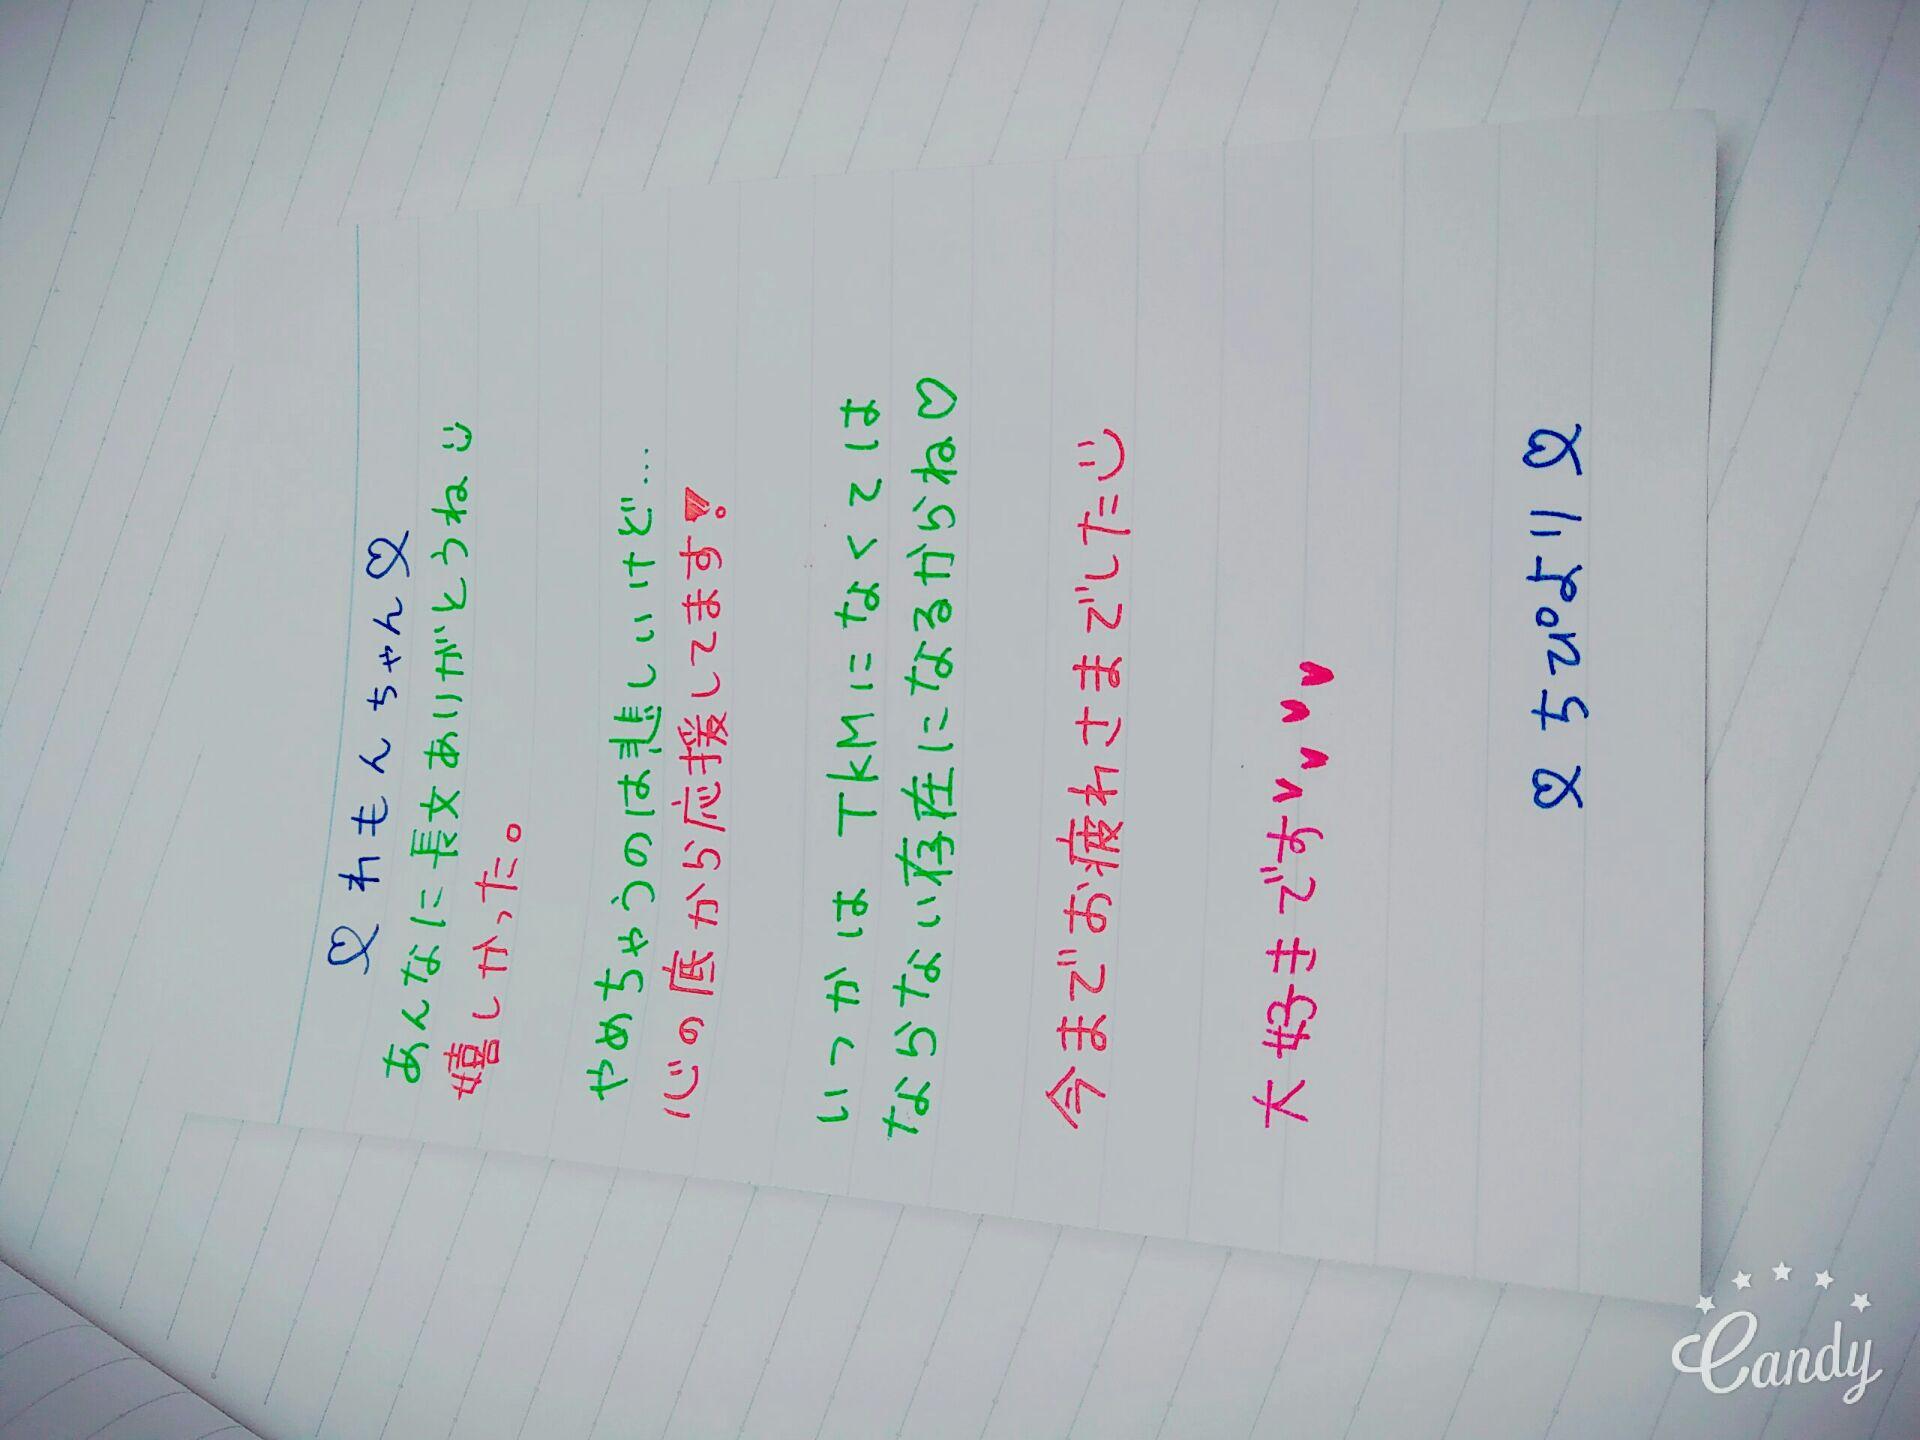 ♡れもんちゃん♡
あんなに長文ありがとうね
嬉しかった。
やめちゃうのは悲しいけど…
心の底から応援してます
いつかは TkMになくては
ならない存在になるからね♡
今までお疲れさまでした
大好きです♥♥♥♥
♡ちぴより♡
Candy